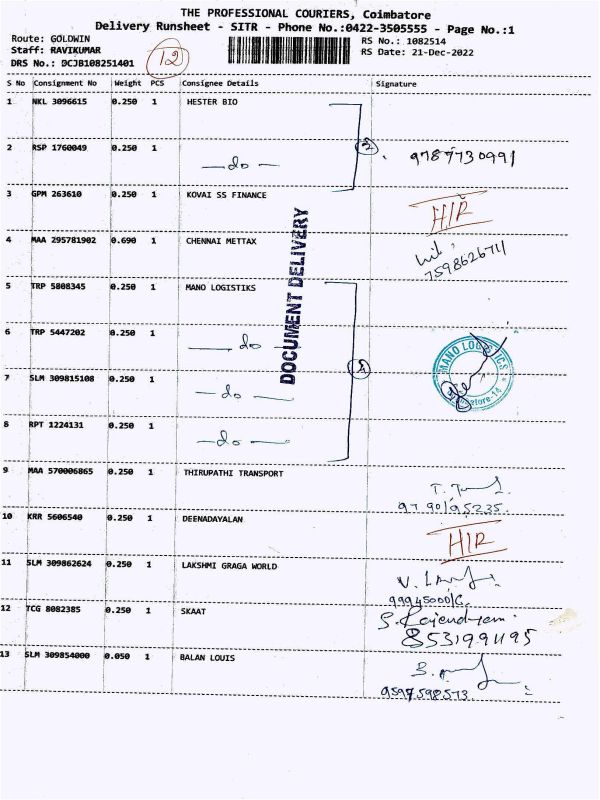 THE PROFESSIONAL COURIERS, Coimbatore
Delivery Runsheet - SITR - Phone No.:0422-3505555 - Page No.:1
Route: GOLDWIN
Staff: RAVIKUMAR
DRS No.: DCJB108251401
12
RS No.: 1082514
RS Date: 21-Dec-2022
S No Consignment No Weight PCS Consignee Details Signature
1 NKL 3096615 0.250 1 HESTER BIO
2 RSP 1760049 0.250 1 -do- 2 9787730991
3 GPM 263610 0.250 1 KOVAI SS FINANCE H/R
4 MAA 295781902 0.690 1 CHENNAI METTAX
7598626711
DOCUMENT DELIVERY
5 TRP 5808345 0.250 1 MANO LOGISTIKS
6 TRP 5447202 0.250 1 -do-
MANO LOGISTICS
7 SLM 309815108 0.250 1 -do-
8 RPT 1224131 0.250 1 -do-
9 MAA 570006865 0.250 1 THIRUPATHI TRANSPORT
9790195235
10 KRR 5606540 0.250 1 DEENADAYALAN H/R
11 SLM 309862624 0.250 1 LAKSHMI GRAGA WORLD
12 TCG 8082385 0.250 1 SKAAT S. Rajendran
8531991195
13 SLM 309854000 0.050 1 BALAN LOUIS
9597598573